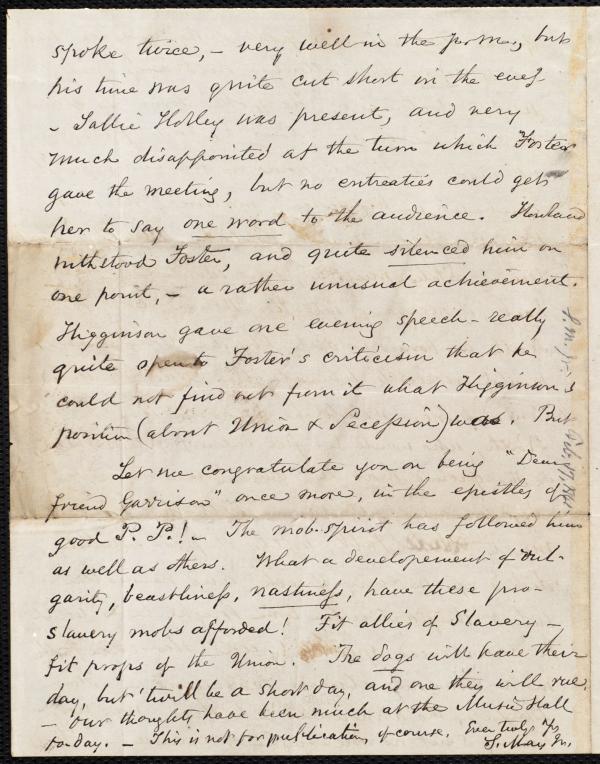 spoke twice, – very well in the p.m., but
his time was quite cut short in the eveg.
– Sallie Holley was present, and very
much disappointed at the turn which Foster
gave the meeting, but no entreaties could get
her to say one word to the audience. Howland
withstood Foster, and quite silenced him on
one point, – a rather unusual achievement.
Higginson gave one evening speech – really
quite open to Foster's criticism that he
could not find out from it what Higginson's
position (about Union & Secession) was. But
Let me congratulate you on being "Dear
friend Garrison" once more, in the epistles of
good P. P.! – The mob-spirit has followed him
as well as others. What a developement of vul-
garity, beastliness, nastiness, have these pro-
slavery mobs afforded! Fit allies of Slavery –
fit props of the Union. The dogs will have their
day, but 'twill be a short day, and one they will rue.
– Our thoughts have been much at the Music Hall
to-day. – This is not for publication, of course. Ever truly Yrs
S. May Jr.